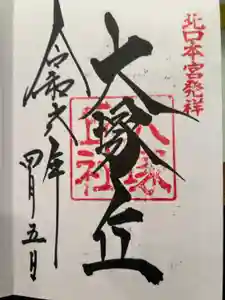 北口本宮発祥
大塚丘
大塚丘社
令和六年
四月五日